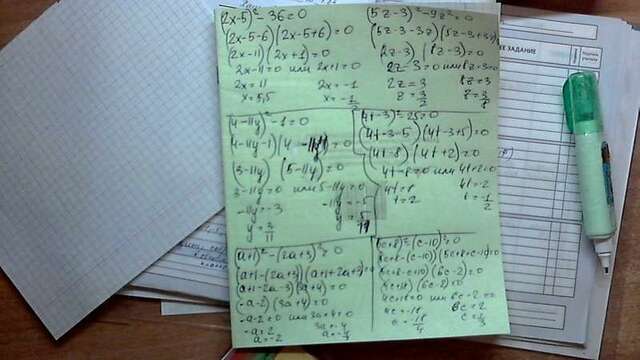 (2x-5)²-36=0
(2x-5-6)(2x-5+6)=0
(2x-11)(2x+1)=0
2x-11=0 или 2x+1=0
2x=11 2x=-1
x=5,5 x=-1/2
(5z-3)²-9z²=0
(5z-3-3z)(5z-3+3z)
(2z-3)(8z-3)=0
2z-3=0 или 8z-3=0
2z=3 8z=3
z=3/2 z=3/8
(4-11y)²-1=0
(4-11y-1)(4-11y =0
(3-11y)(5-11y)=0
3-11y=0 или 5-11y=0
-11y=-3 -11y=-5
y=3/11 y=5/11
(4t-3)²-25=0
(4t-3-5)(4t-3+5)=0
(4t-8)(4t+2)=0
4t-8=0 или 4t+2=0
4t=8 4t=-2
t=2 t=-1/2
(a+1)²-(2a+3)²=0
(a+1-(2a+3))(a+1+2a+3)=0
(a+1-2a-3)(3a+4)=0
(-a-2)(3a+4)=0
-a-2=0 или 3a+4=0
-a=2 3a=-4
a=-2
(5c+8)²-(c-10)²=0
(5c+8-(c-10))(5c+8+c-10)=0
(5c+8-c+10)(6c-2)=0
(4c+18)(6c-2)=0
4c+18=0 или 6c-2=0
4c=-18 6c=2
c=-18/4
ЗАДАНИЕ